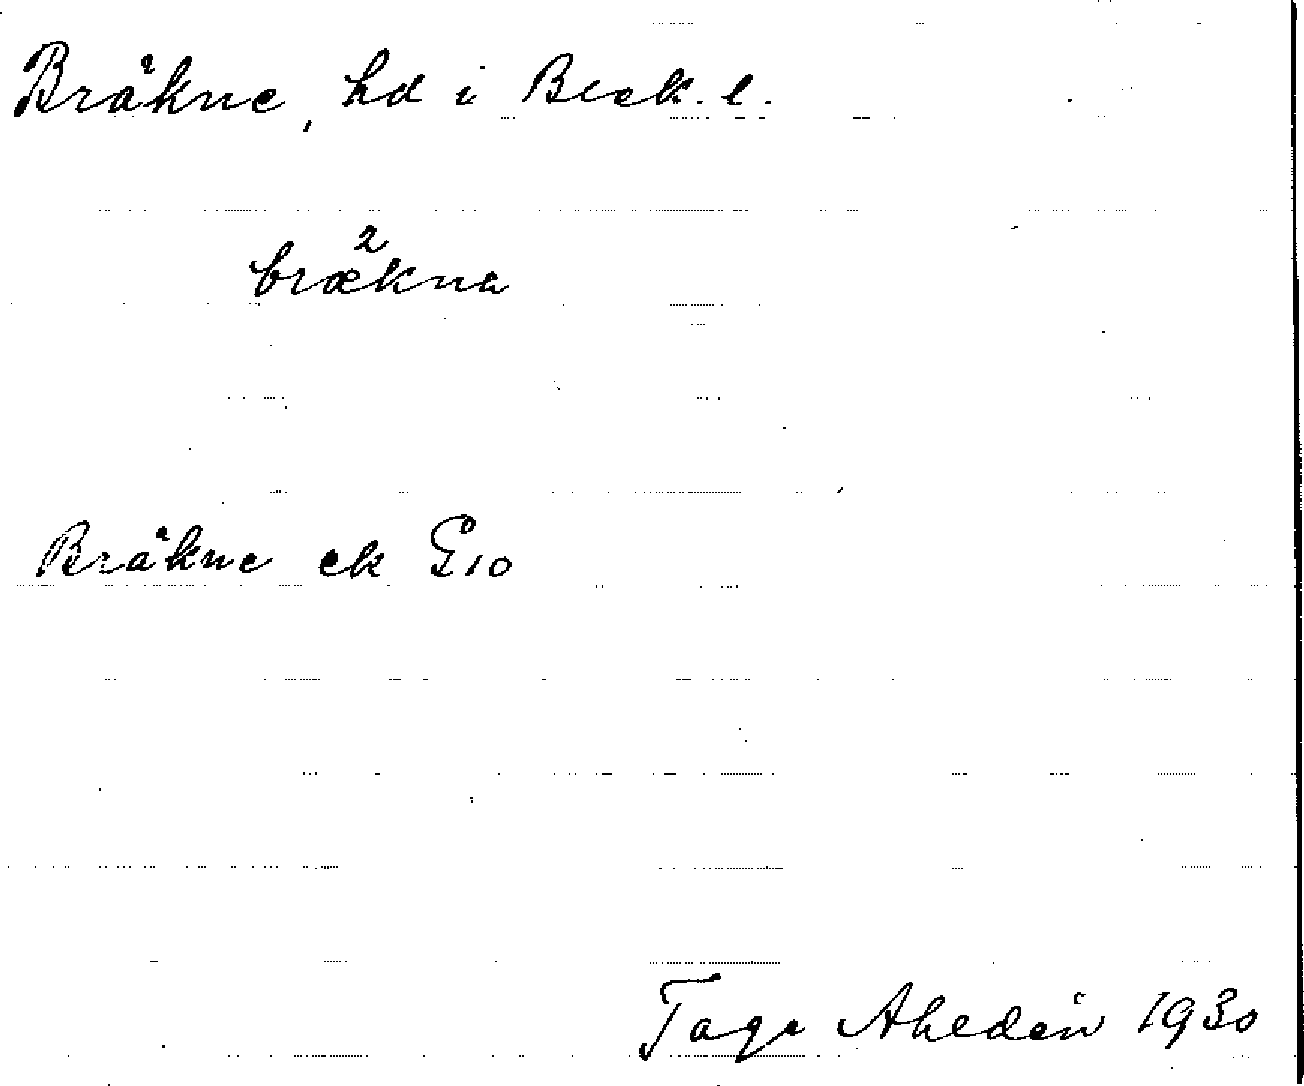 Bräkne, hd i Blek. l.
2
brækna
Bräkne ek E10
Tage Ahldén 1930